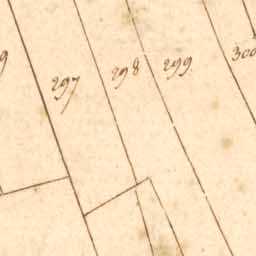 297
298
299
300